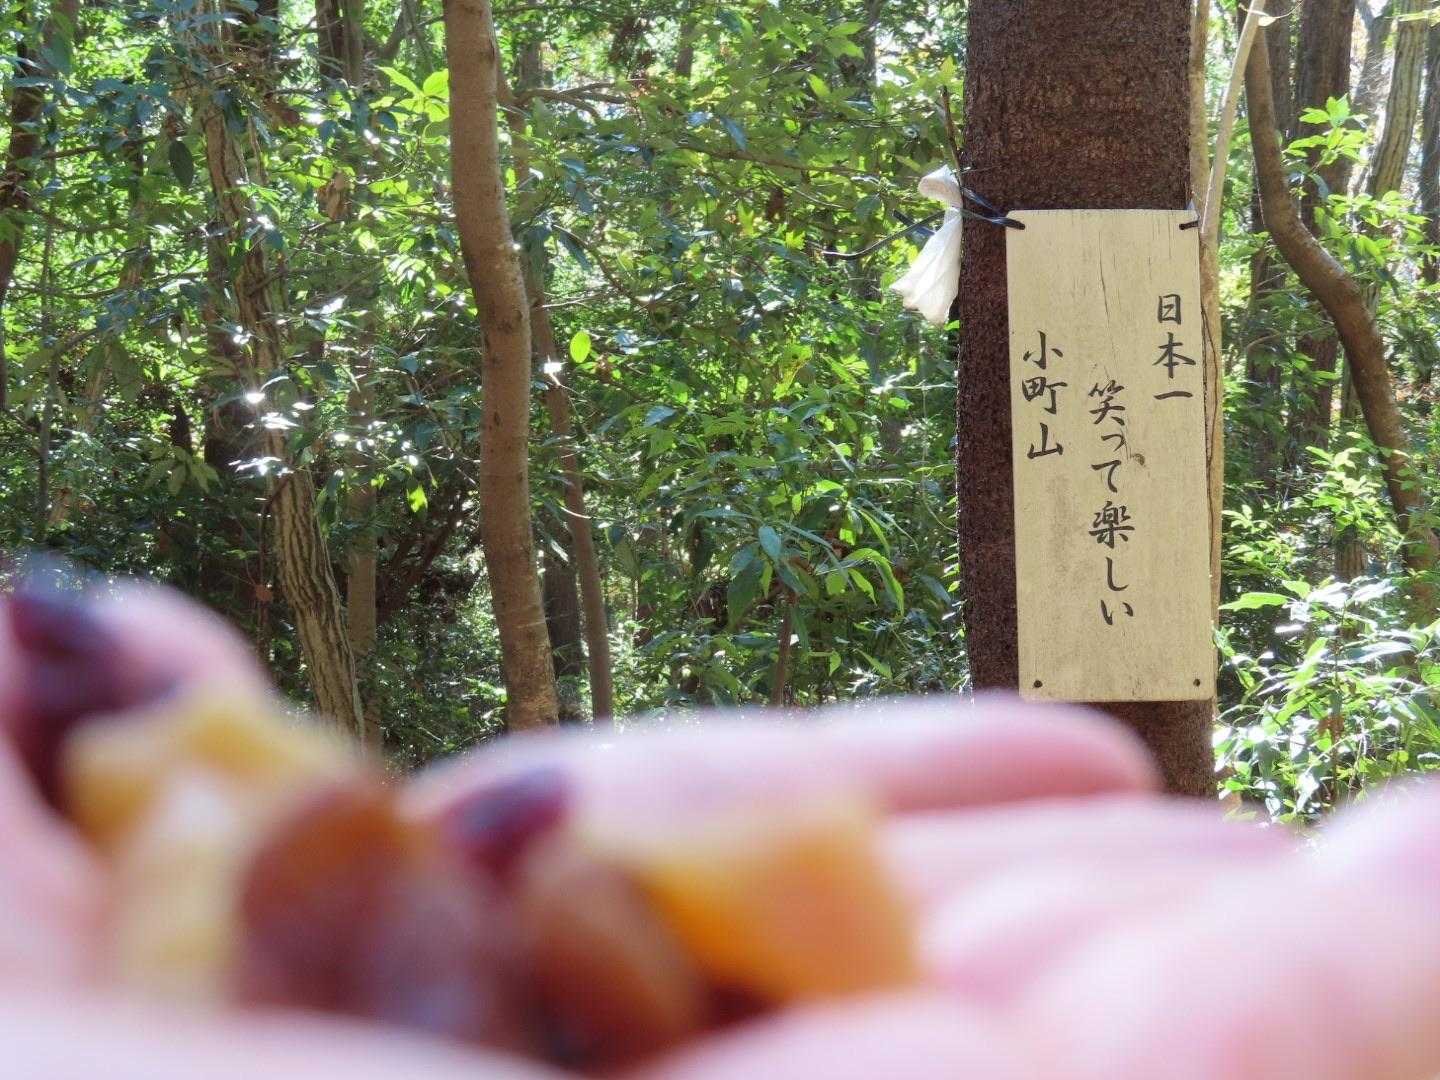 日本一
笑って楽しい
小町山